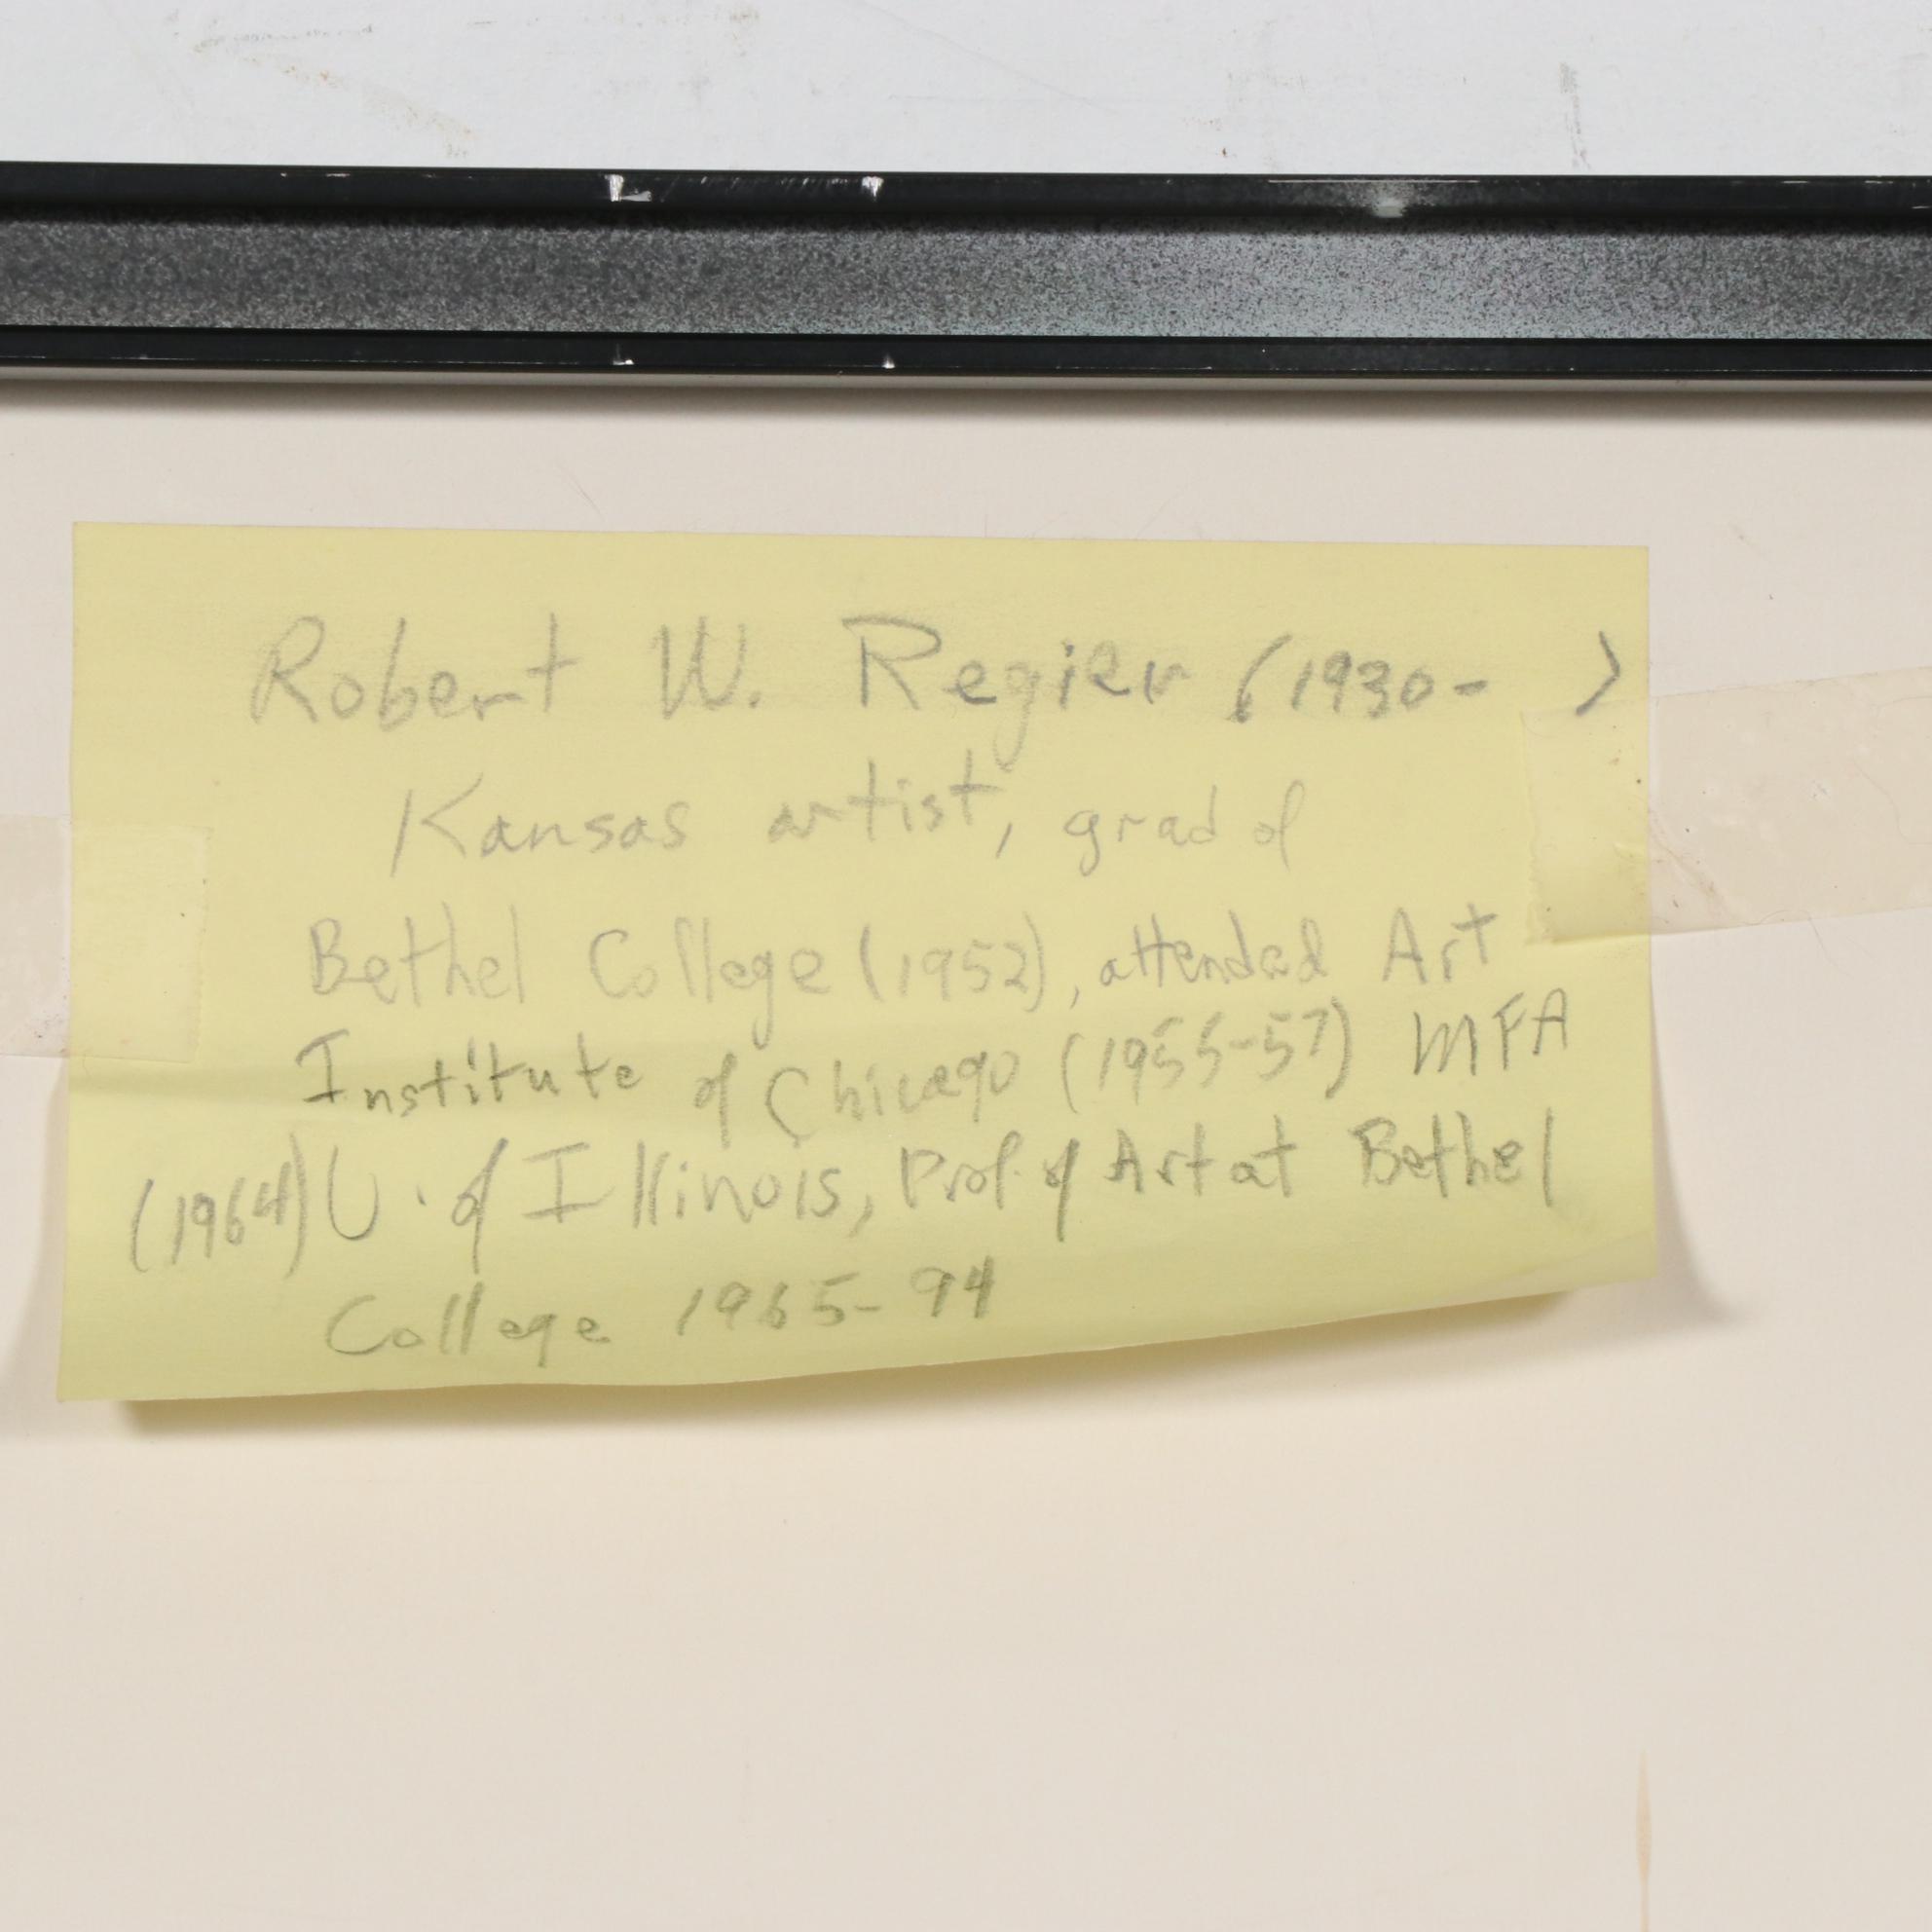 Robert W. Regier (1930- )
Kansas artist, grad of
Bethel College (1952), attended Art
Institute of Chicago (1955-57) MFA
(1964) U. of Illinois, Prof. of Art at Bethel
College 1965-94